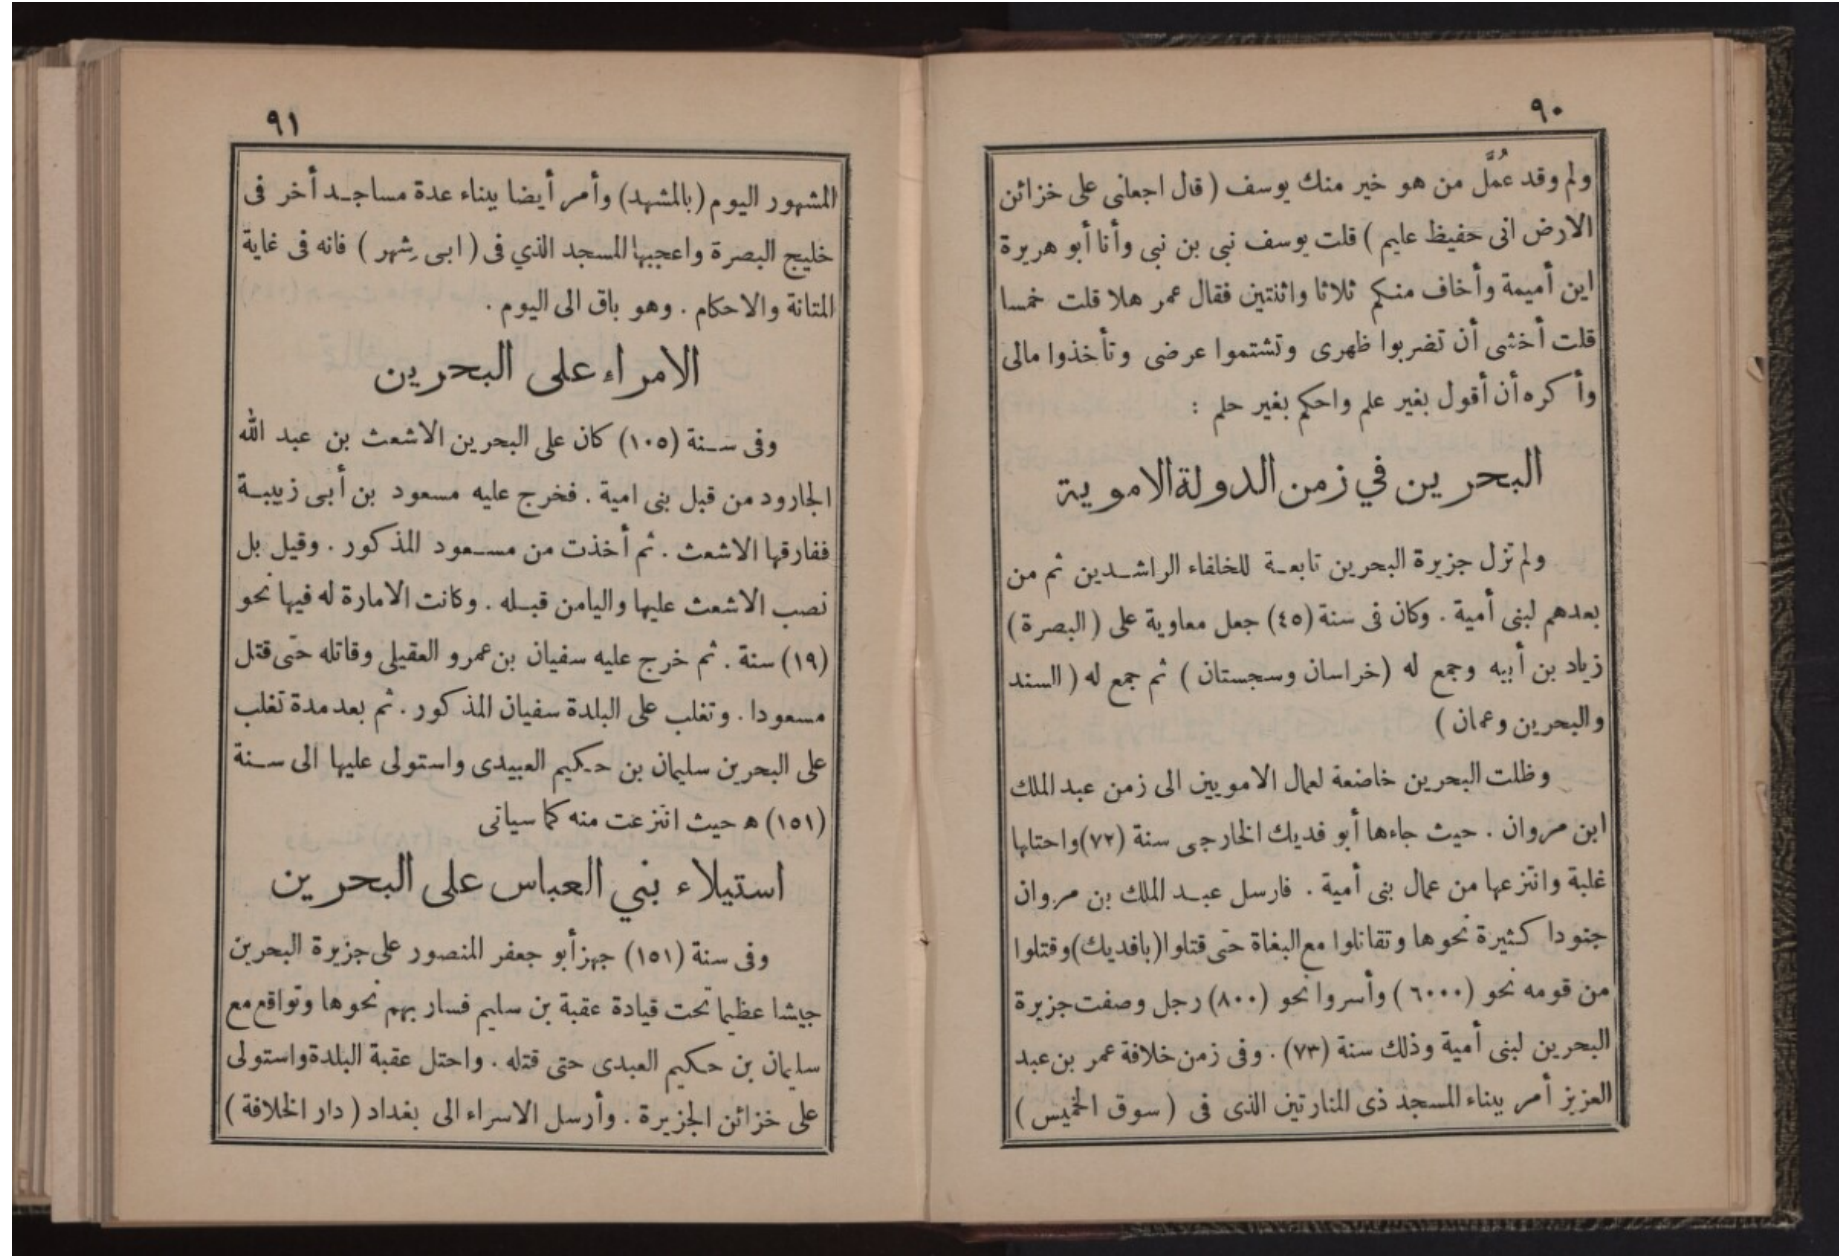 ٩٠
ولم وقد عُمِّلَ من هو خير منك يوسف ( قال اجعلنى على خزائن
الارض انى حفيظ عليم ) قلت يوسف نبى بن نبى وأنا أبو هريرة
ابن أميمة وأخاف منكم ثلاثا واثنتين فقال عمر هلا قلت خمسا
قلت أخشى أن تضربوا ظهرى وتشتموا عرضى وتأخذوا مالى
وأكره أن أقول بغير علم واحكم بغير حلم :
البحرين في زمن الدولة الاموية
ولم تزل جزيرة البحرين تابعة للخلفاء الراشدين ثم من
بعدهم لبنى أمية . وكان فى سنة (٤٥) جعل معاوية على ( البصرة )
زياد بن أبيه وجمع له ( خراسان وسجستان ) ثم جمع له ( السند
والبحرين وعمان )
وظلت البحرين خاضعة لعمال الامويين الى زمن عبد الملك
ابن مروان . حيث جاءها أبو فديك الخارجى سنة (٧٢) واحتلها
غلبة وانتزعها من عمال بنى أمية . فارسل عبد الملك بن مروان
جنودا كثيرة نحوها وتقاتلوا مع البغاة حتى قتلوا (بافديك) وقتلوا
من قومه نحو (٦٠٠٠) وأسروا نحو (٨٠٠) رجل وصفت جزيرة
البحرين لبنى أمية وذلك سنة (٧٣) . وفى زمن خلافة عمر بن عبد
العزيز أمر ببناء المسجد ذى المنارتين الذى فى ( سوق الخميس )
٩١
المشهور اليوم (بالمشهد) وأمر أيضا ببناء عدة مساجد أخر فى
خليج البصرة واعجبها المسجد الذي فى ( ابى شِهر ) فانه فى غاية
المتانة والاحكام . وهو باق الى اليوم .
الامراء على البحرين
وفى سنة (١٠٥) كان على البحرين الاشعث بن عبد الله
الجارود من قبل بنى امية . فخرج عليه مسعود بن أبى زينبة
ففارقها الاشعث . ثم أخذت من مسعود المذكور . وقيل بل
نصب الاشعث عليها واليا من قبله . وكانت الامارة له فيها نحو
(١٩) سنة . ثم خرج عليه سفيان بن عمرو العقيلى وقاتله حتى قتل
مسعودا . وتغلب على البلدة سفيان المذكور . ثم بعد مدة تغلب
على البحرين سليمان بن حكيم العبيدى واستولى عليها الى سنة
(١٥١) ه حيث انتزعت منه كما سيأتى
استيلاء بني العباس على البحرين
وفى سنة (١٥١) جهز أبو جعفر المنصور على جزيرة البحرين
جيشا عظيما تحت قيادة عقبة بن سليم فسار بهم نحوها وتواقع مع
سليمان بن حكيم العبدى حتى قتله . واحتل عقبة البلدة واستولى
على خزائن الجزيرة . وأرسل الاسراء الى بغداد ( دار الخلافة )